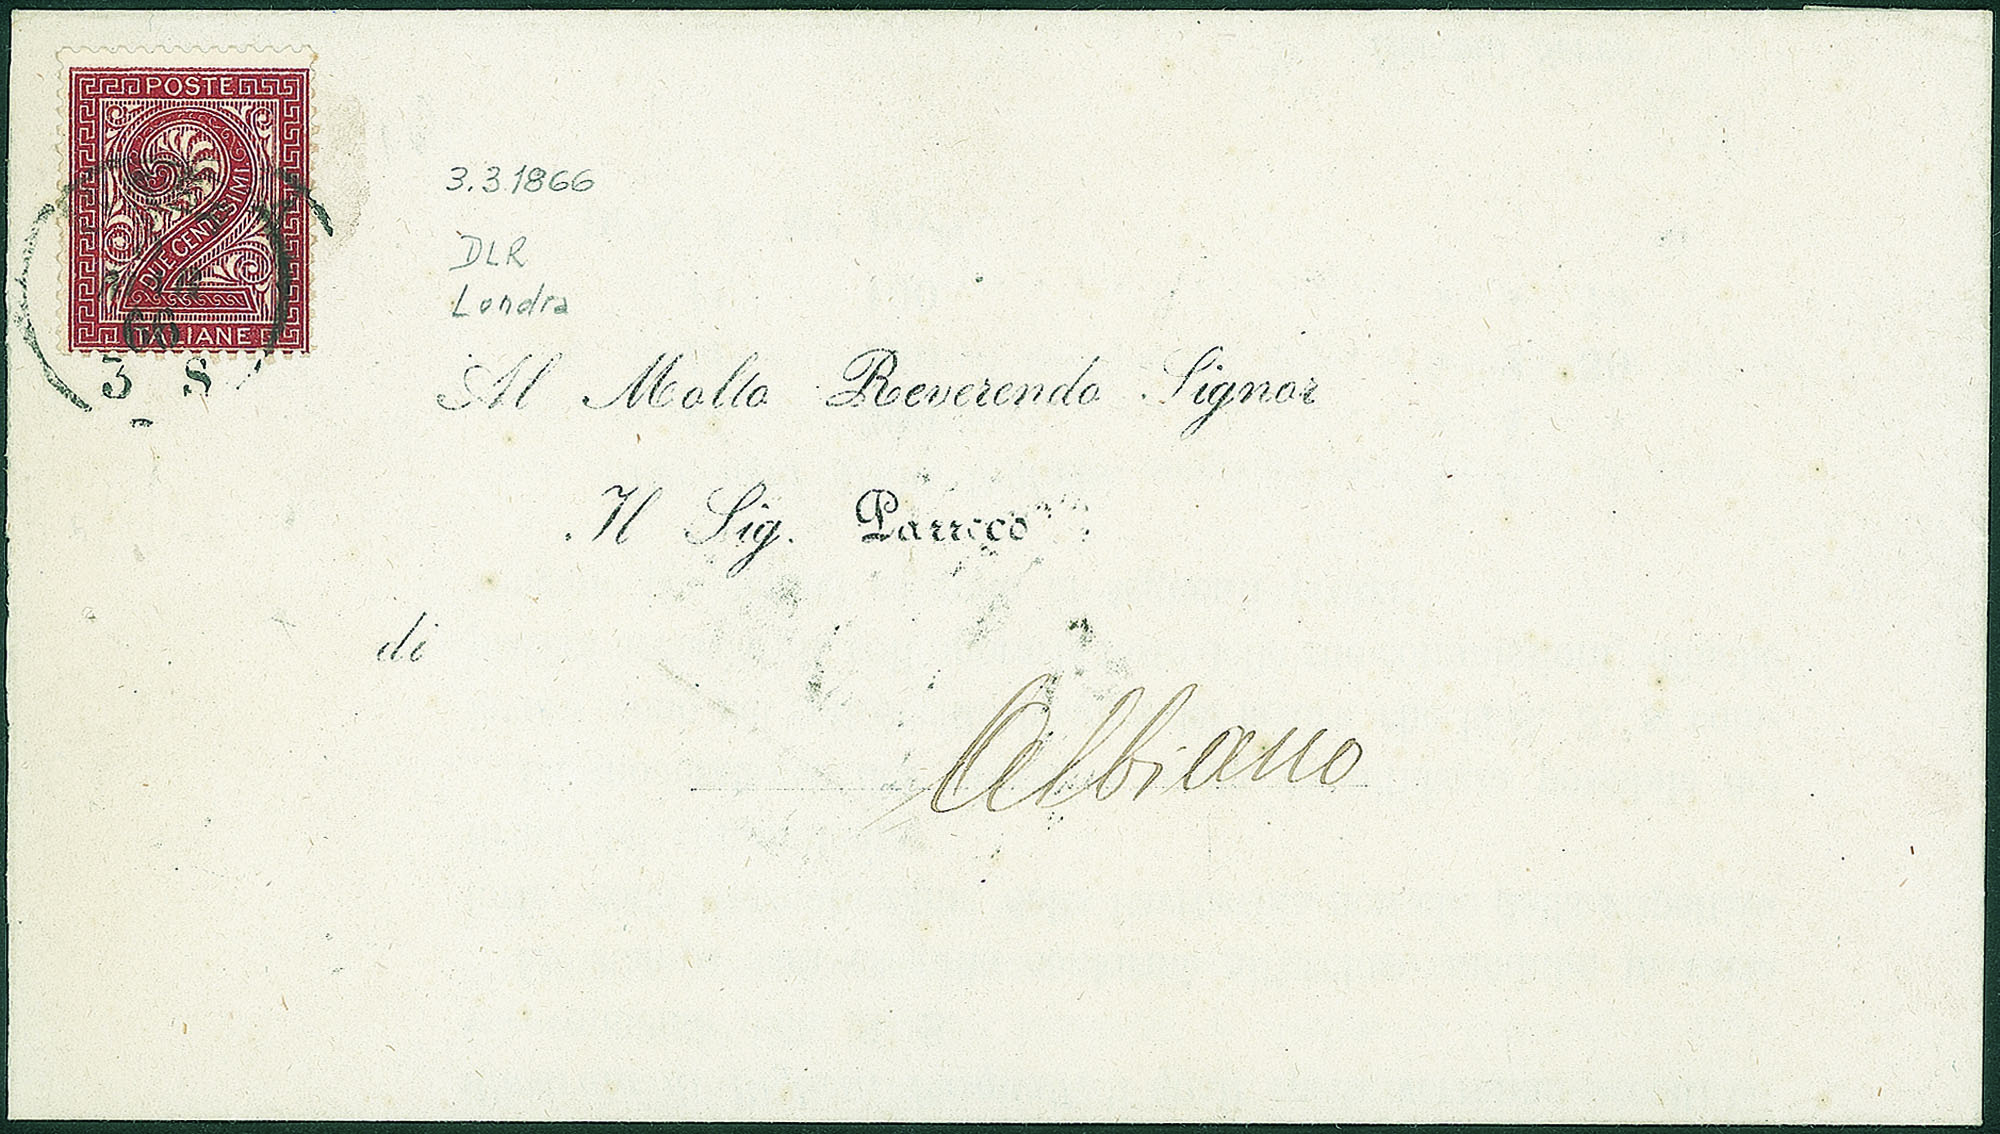 POSTE
DUE CENTESIMI
ITALIANE
66
3 S
3.3 1866
DLR
Londra
Al Molto Reverendo Signor
Il Sig. Parroco
di
Albiano